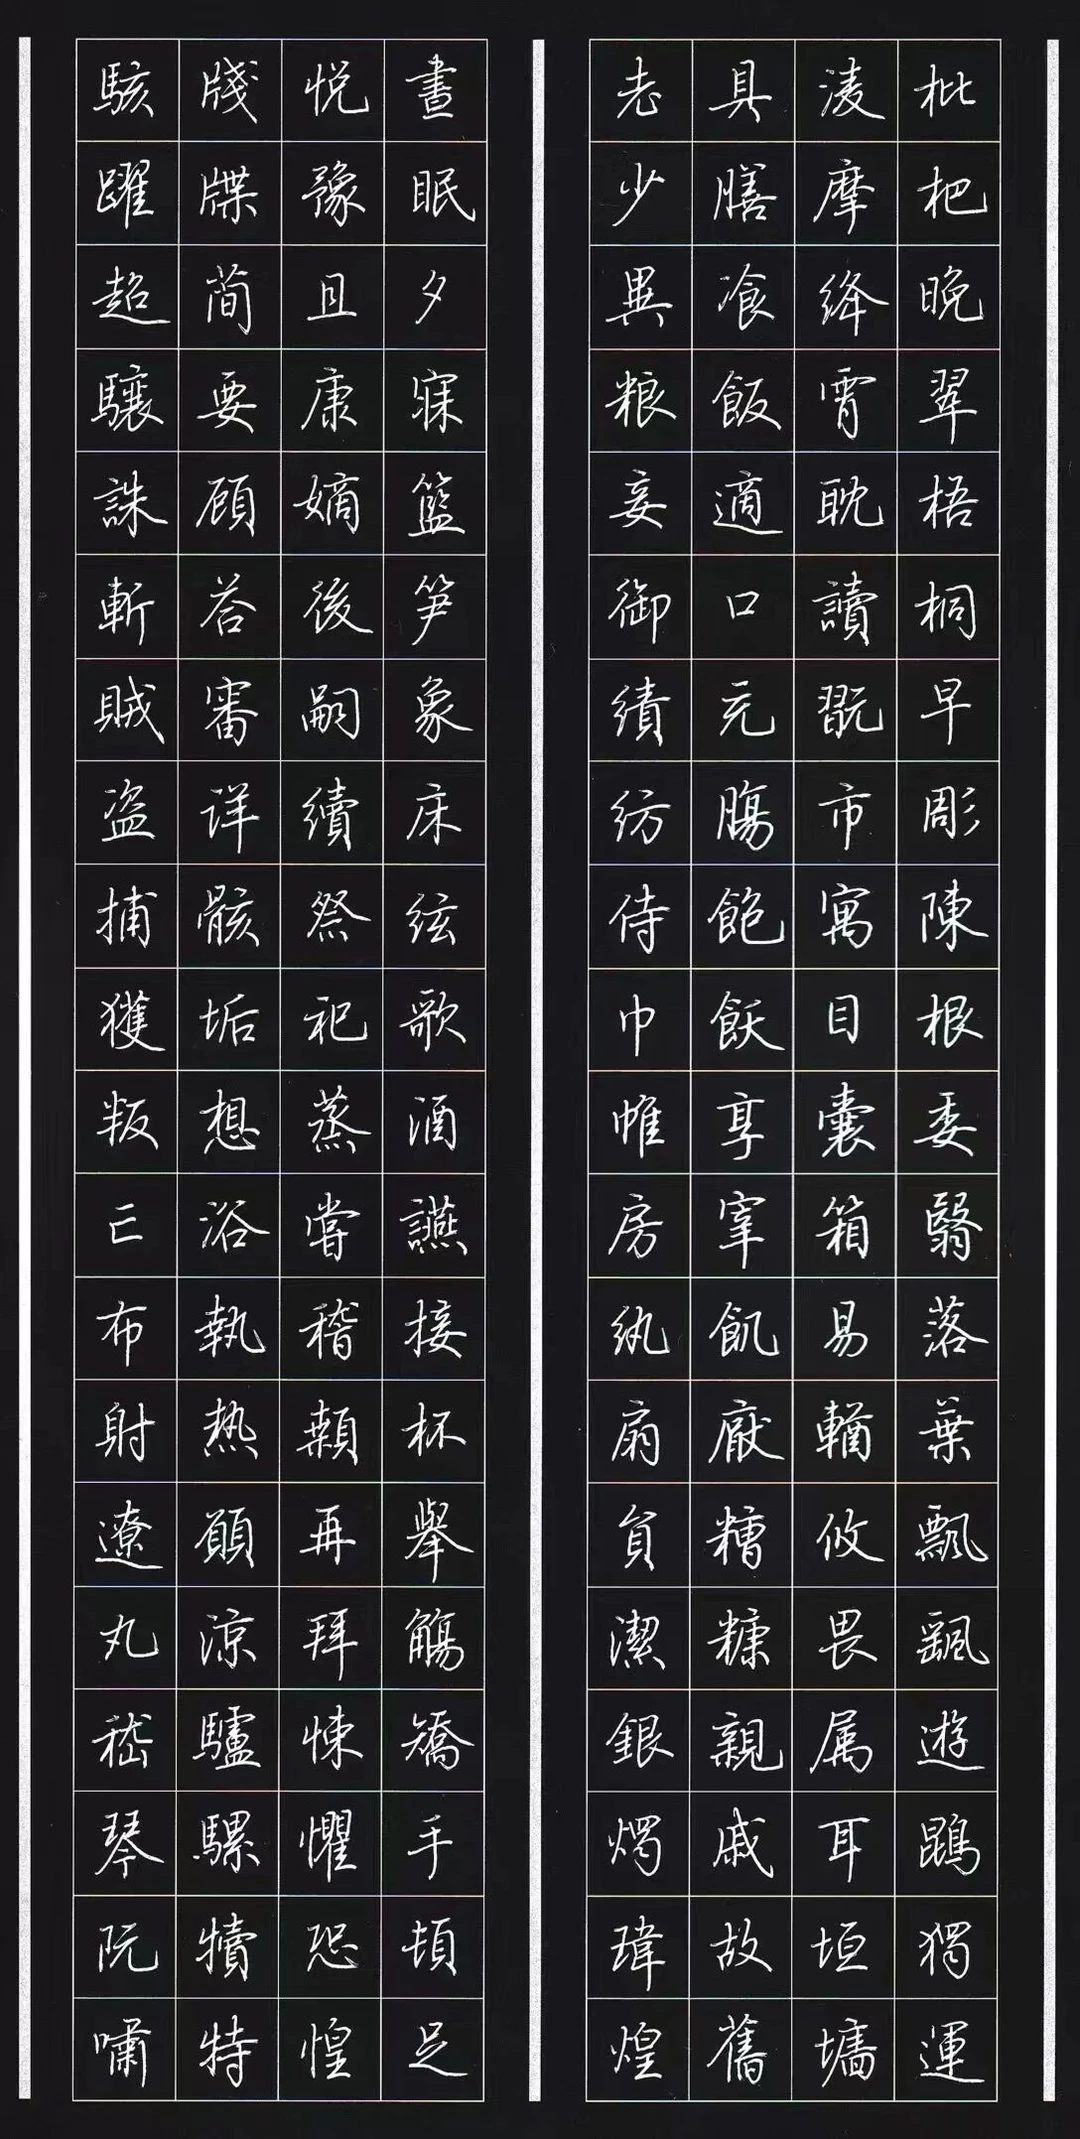 枇杷晚翠梧桐早彫陳根委翳落葉飄飖遊鵾獨運
淩摩絳霄耽讀翫市寓目囊箱易輶攸畏属耳垣墻
具膳飡飯適口充膓飽飫享宰飢厭糟糠親戚故舊
老少異粮妾御績紡侍巾帷房紈扇員潔銀燭瑋煌
晝眠夕寐籃笋象床絃歌酒讌接杯舉觴矯手頓足
悦豫且康嫡後嗣續祭祀蒸嘗稽顙再拜悚懼恐惶
牋牒蕳要顧荅審详骸垢想浴執热願涼驢騾犢特
駭躍超驤誅斬賊盗捕獲叛亡布射遼丸嵇琴阮嘯